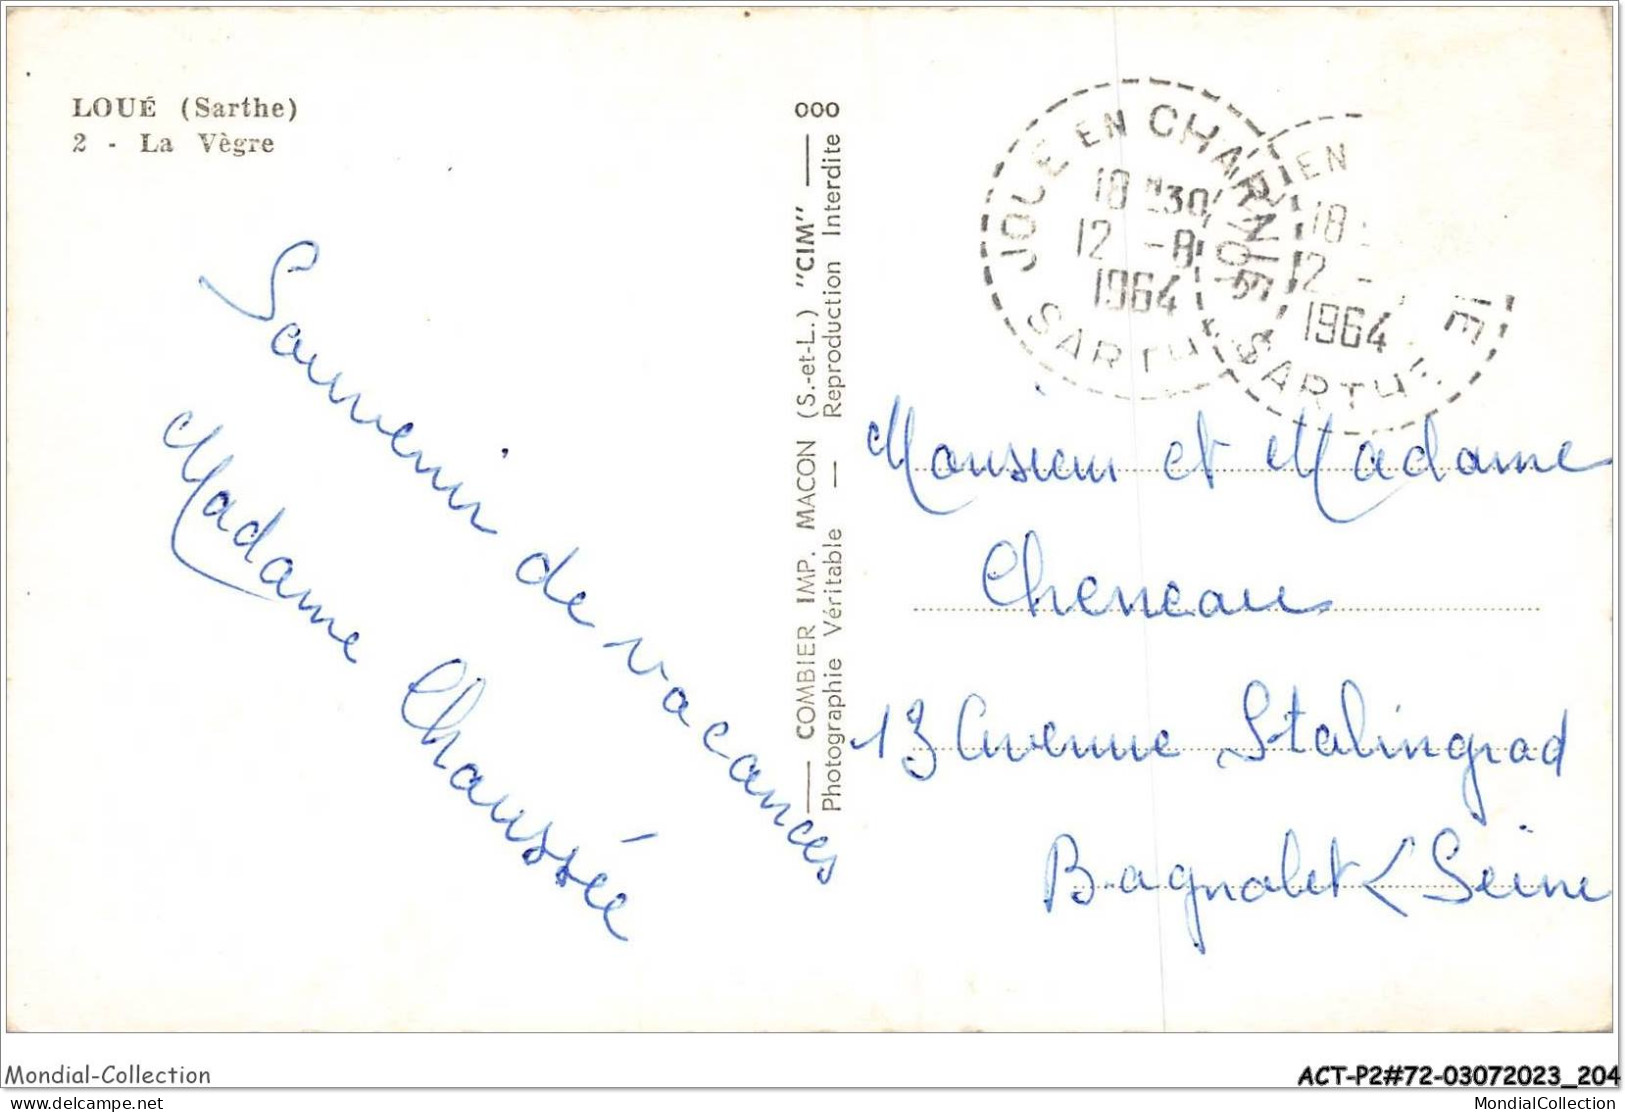 LOUÉ (Sarthe)
2 - La Vègre
Souvenir de vacances
Madame Chaussée
ooo
COMBIER IMP. MACON (S.-et-L.) "CIM"
Photographie Véritable — Reproduction Interdite
JOUE EN CHARNIE
18 H30
12 -8
1964
SARTHE
EN
18
12 -
1964
SARTHE
Monsieur et Madame
Cheneau
13 Avenue Stalingrad
Bagnolet (Seine
Mondial-Collection
ACT-P2#72-03072023_204
delcampe.net
MondialCollection